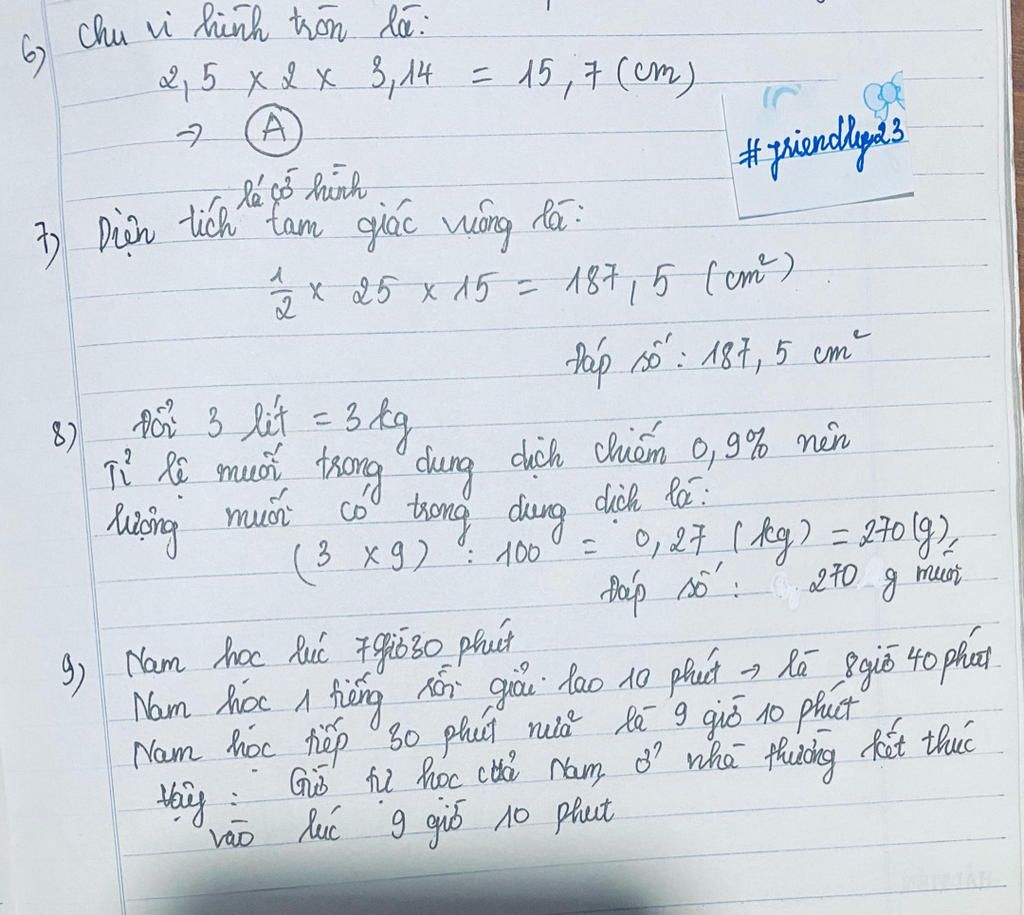 6) Chu vi hình tròn là:
2,5 x 2 x 3,14 = 15,7 (cm)
→ A
#friendly23
lá cờ hình
7) Diện tích tam giác vuông là:
1/2 x 25 x 15 = 187,5 (cm²)
Đáp số: 187,5 cm²
8) Đổi 3 lít = 3 kg
Tỉ lệ muối trong dung dịch chiếm 0,9% nên
lượng muối có trong dung dịch là:
(3 x 9) : 100 = 0,27 (kg) = 270(g)
Đáp số: 270 g muối
9) Nam học lúc 7 giờ 30 phút
Nam học 1 tiếng rồi giải lao 10 phút → là 8 giờ 40 phút
Nam học tiếp 30 phút nữa là 9 giờ 10 phút
Vậy: Giờ tự học của Nam ở nhà thường kết thúc
vào lúc 9 giờ 10 phút